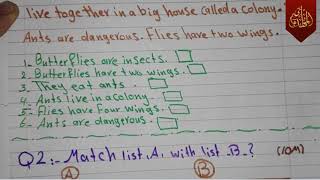 live together in a big house called a colony.
Ants are dangerous. Flies have two wings.
1- Butterflies are insects.
2- Butterflies have two wings.
3- They eat ants.
4- Ants live in a colony.
5- Flies have Four wings.
6- Ants are dangerous.
Q2:- Match list .A. with list .B. ? (10M)
A B